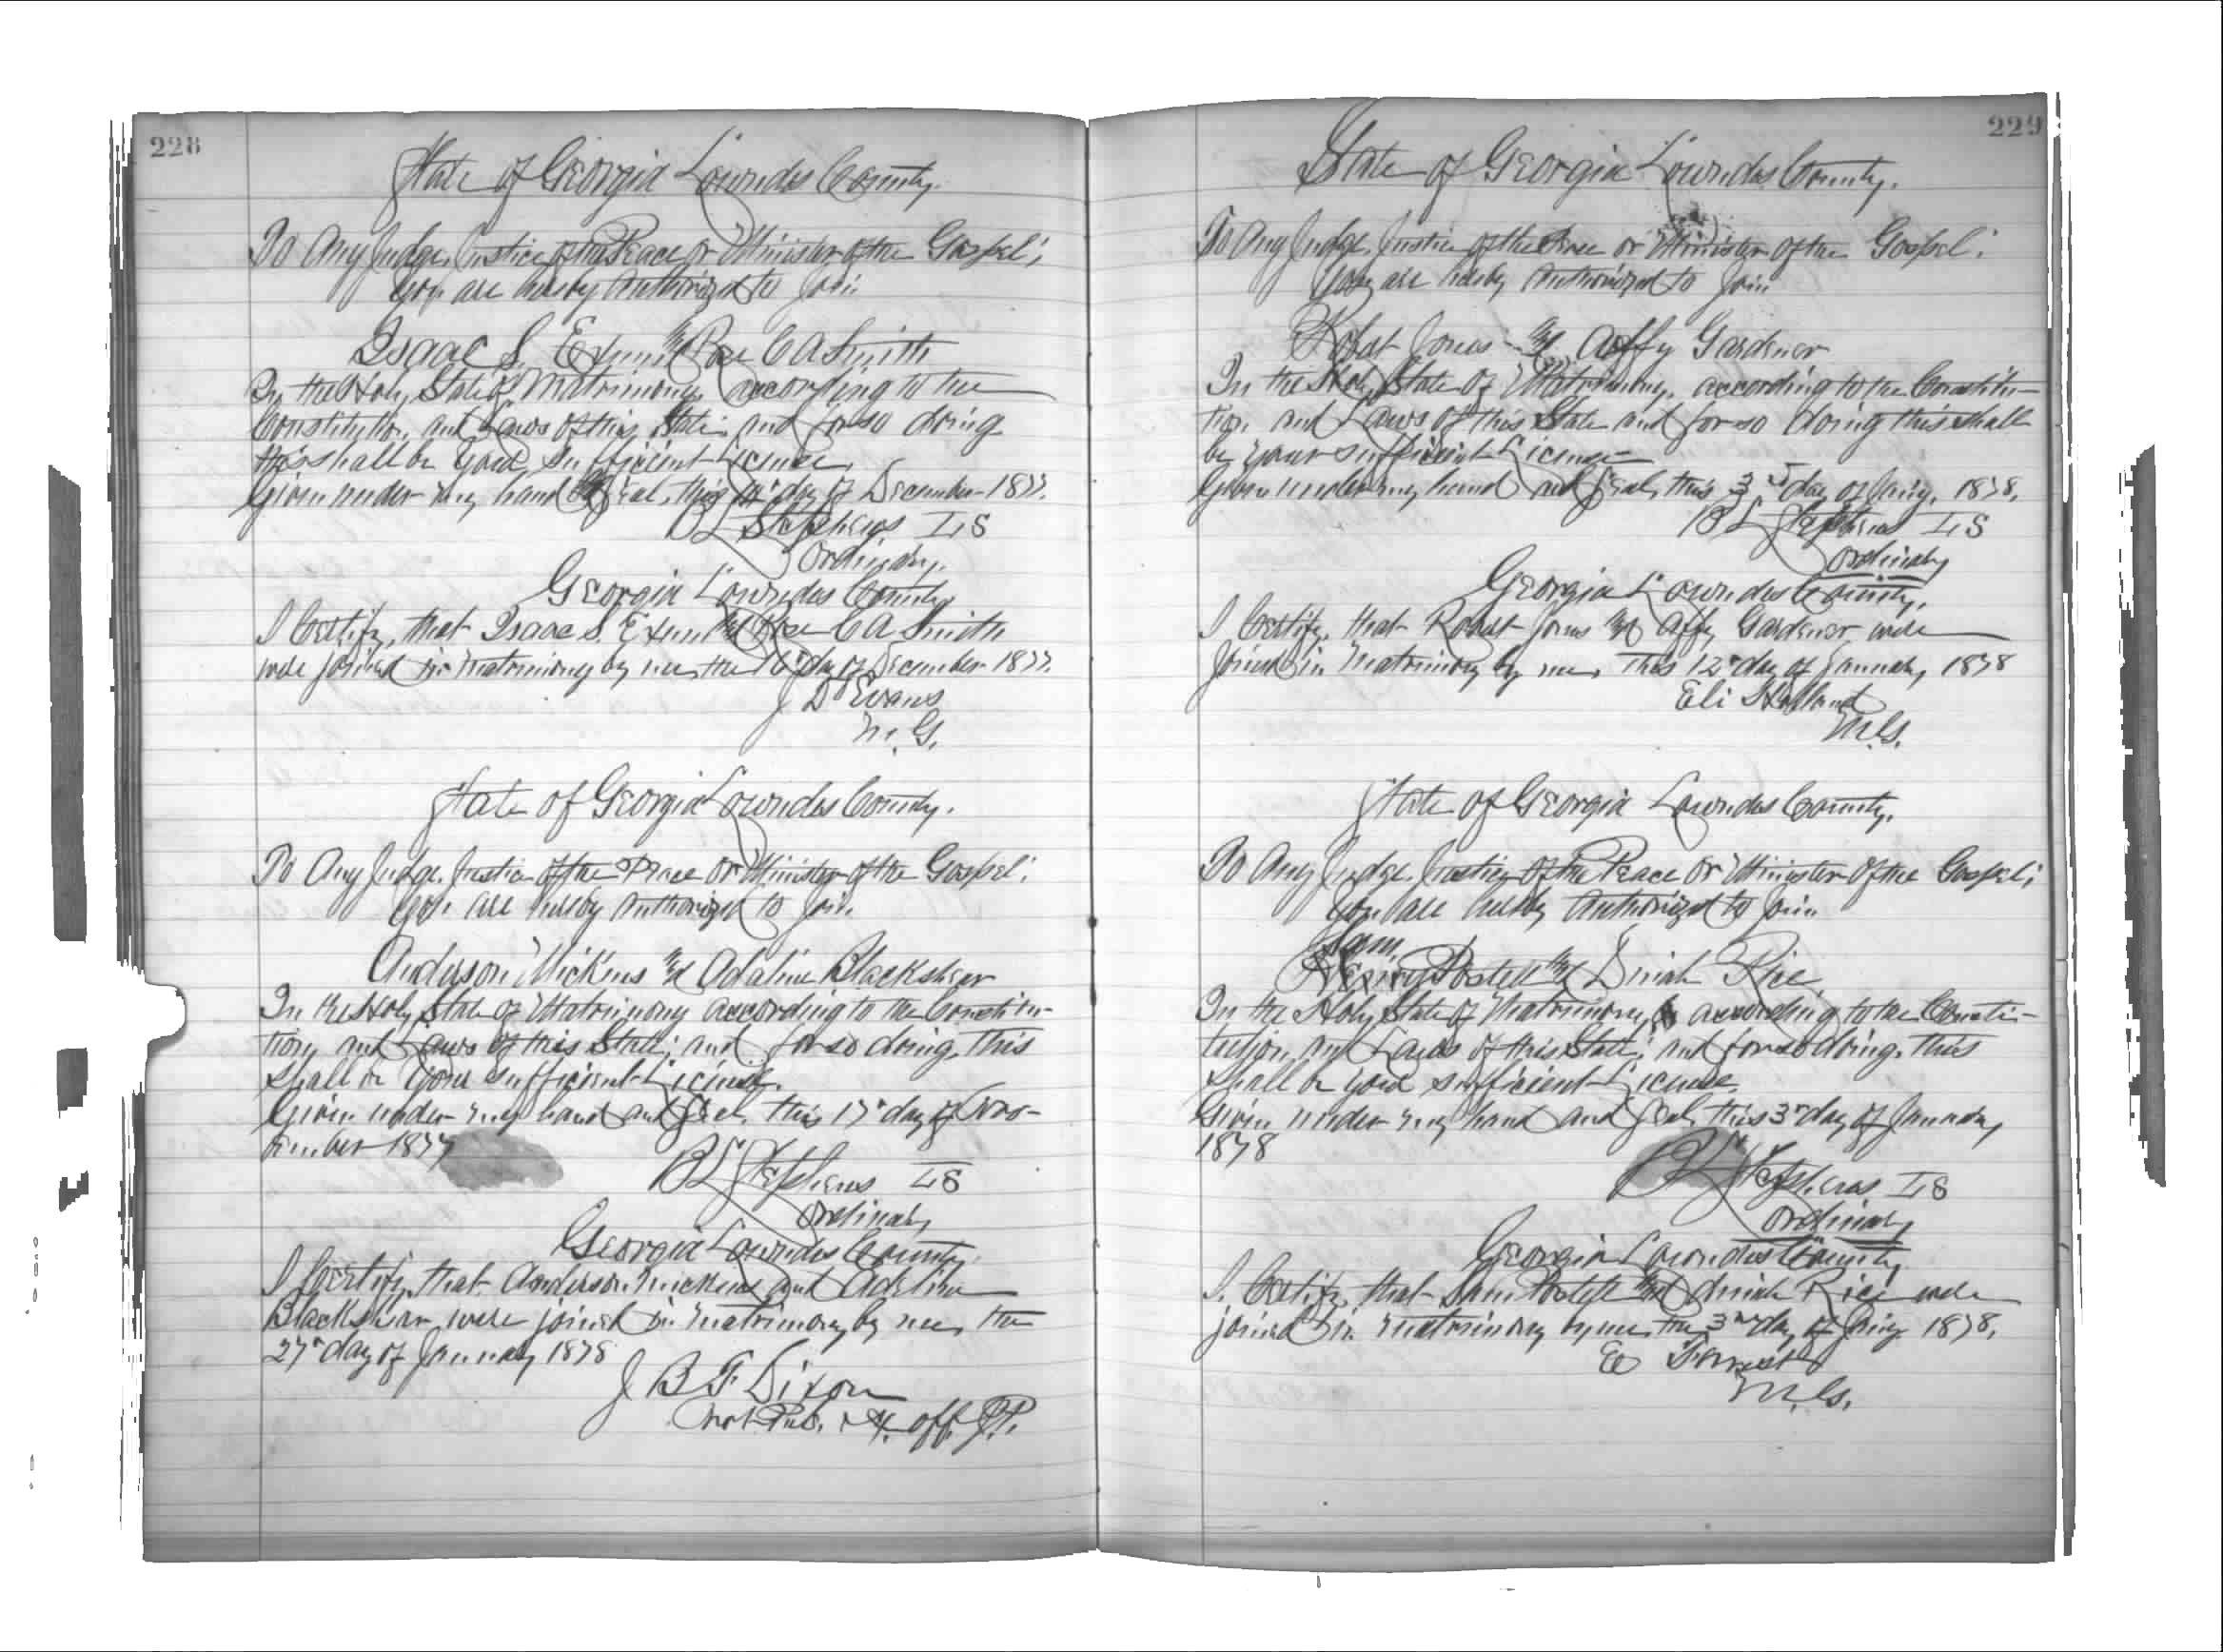 228
State of Georgia Lowndes County.
To Any Judge, Justice of the Peace or Minister of the Gospel;
You are hereby Authorized to Join
Isaac S. & C A Smith
In the Holy State of Matrimony, according to the
Constitution, and Laws of this State; and for so doing
this shall be your sufficient License,
Given under my hand & Seal, this day of December 1877.
B L Stephens L S
Ordinary.
Georgia Lowndes County
I Certify, that Isaac S. & C A Smith
were joined in Matrimony by me, the 16th day of December 1877.
J D Evans
M. G.
State of Georgia Lowndes County.
To Any Judge, Justice of the Peace or Minister of the Gospel;
You are hereby Authorized to Join.
Anderson Mickens & Adaline Blackshear
In the Holy State of Matrimony according to the Constitu-
tion, and Laws of this State; and for so doing, this
shall be your sufficient License.
Given under my hand and Seal, this 17th day of Nov-
ember 1877
B L Stephens L S
Ordinary
Georgia Lowndes County.
I Certify, that Anderson Mickens and Adeline
Blackshear were joined in Matrimony by me, the
27th day of January 1878
J B F Dixon
Not Pub. & Ex. off. J.P.
229
State of Georgia Lowndes County.
To Any Judge, Justice of the Peace or Minister of the Gospel;
You are hereby Authorized to Join
Robert Jones & Affy Gardener
In the Holy State of Matrimony, according to the Constitu-
tion and Laws of this State and for so doing this shall
be your sufficient License
Given under my hand and Seal, this 3rd day of Jany. 1878.
B L Stephens L S
Ordinary
Georgia Lowndes County.
I Certify, that Robert Jones & Affy Gardener were
Joined in Matrimony by me, This 12th day of January, 1878
Eli Holland
M.G.
State of Georgia Lowndes County.
To Any Judge, Justice of the Peace or Minister of the Gospel;
You are hereby Authorized to Join
Sam
Henry Postell & Dinah Rice
In the Holy State of Matrimony, according to the Consti-
tution, and Laws of this State; and for so doing, this
shall be your sufficient License.
Given under my hand and Seal, this 3rd day of January
1878
B L Stephens L S
Ordinary
Georgia Lowndes County
I Certify, that Sam Postell & dinah Rice were
joined in Matrimony by me, the 3rd day of Jany 1878.
E Forrest
M.G.